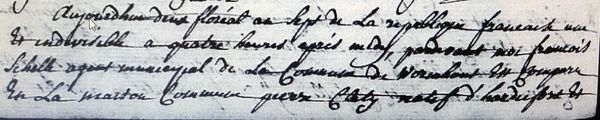 Aujourdhui deux floreal an Sept de La republique francaise une
et indivisible a quatre heures aprés midy, pardevant moi francois
Schelle agent municipal de La Commune de Wormhout est comparu
En La maison Commune pierre natif d'hardifort et